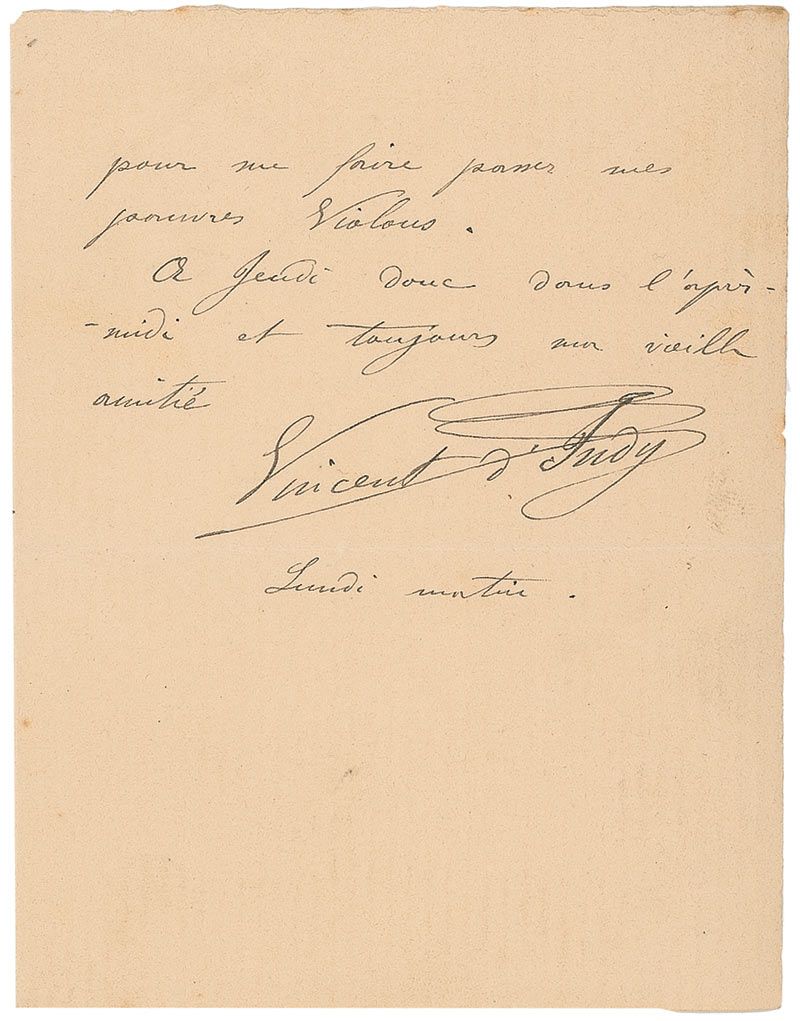 pour me faire passer mes
pauvres Violons.
A Jeudi donc dans l'après-
-midi et toujours ma vieille
amitié
Vincent d'Indy
Lundi matin.